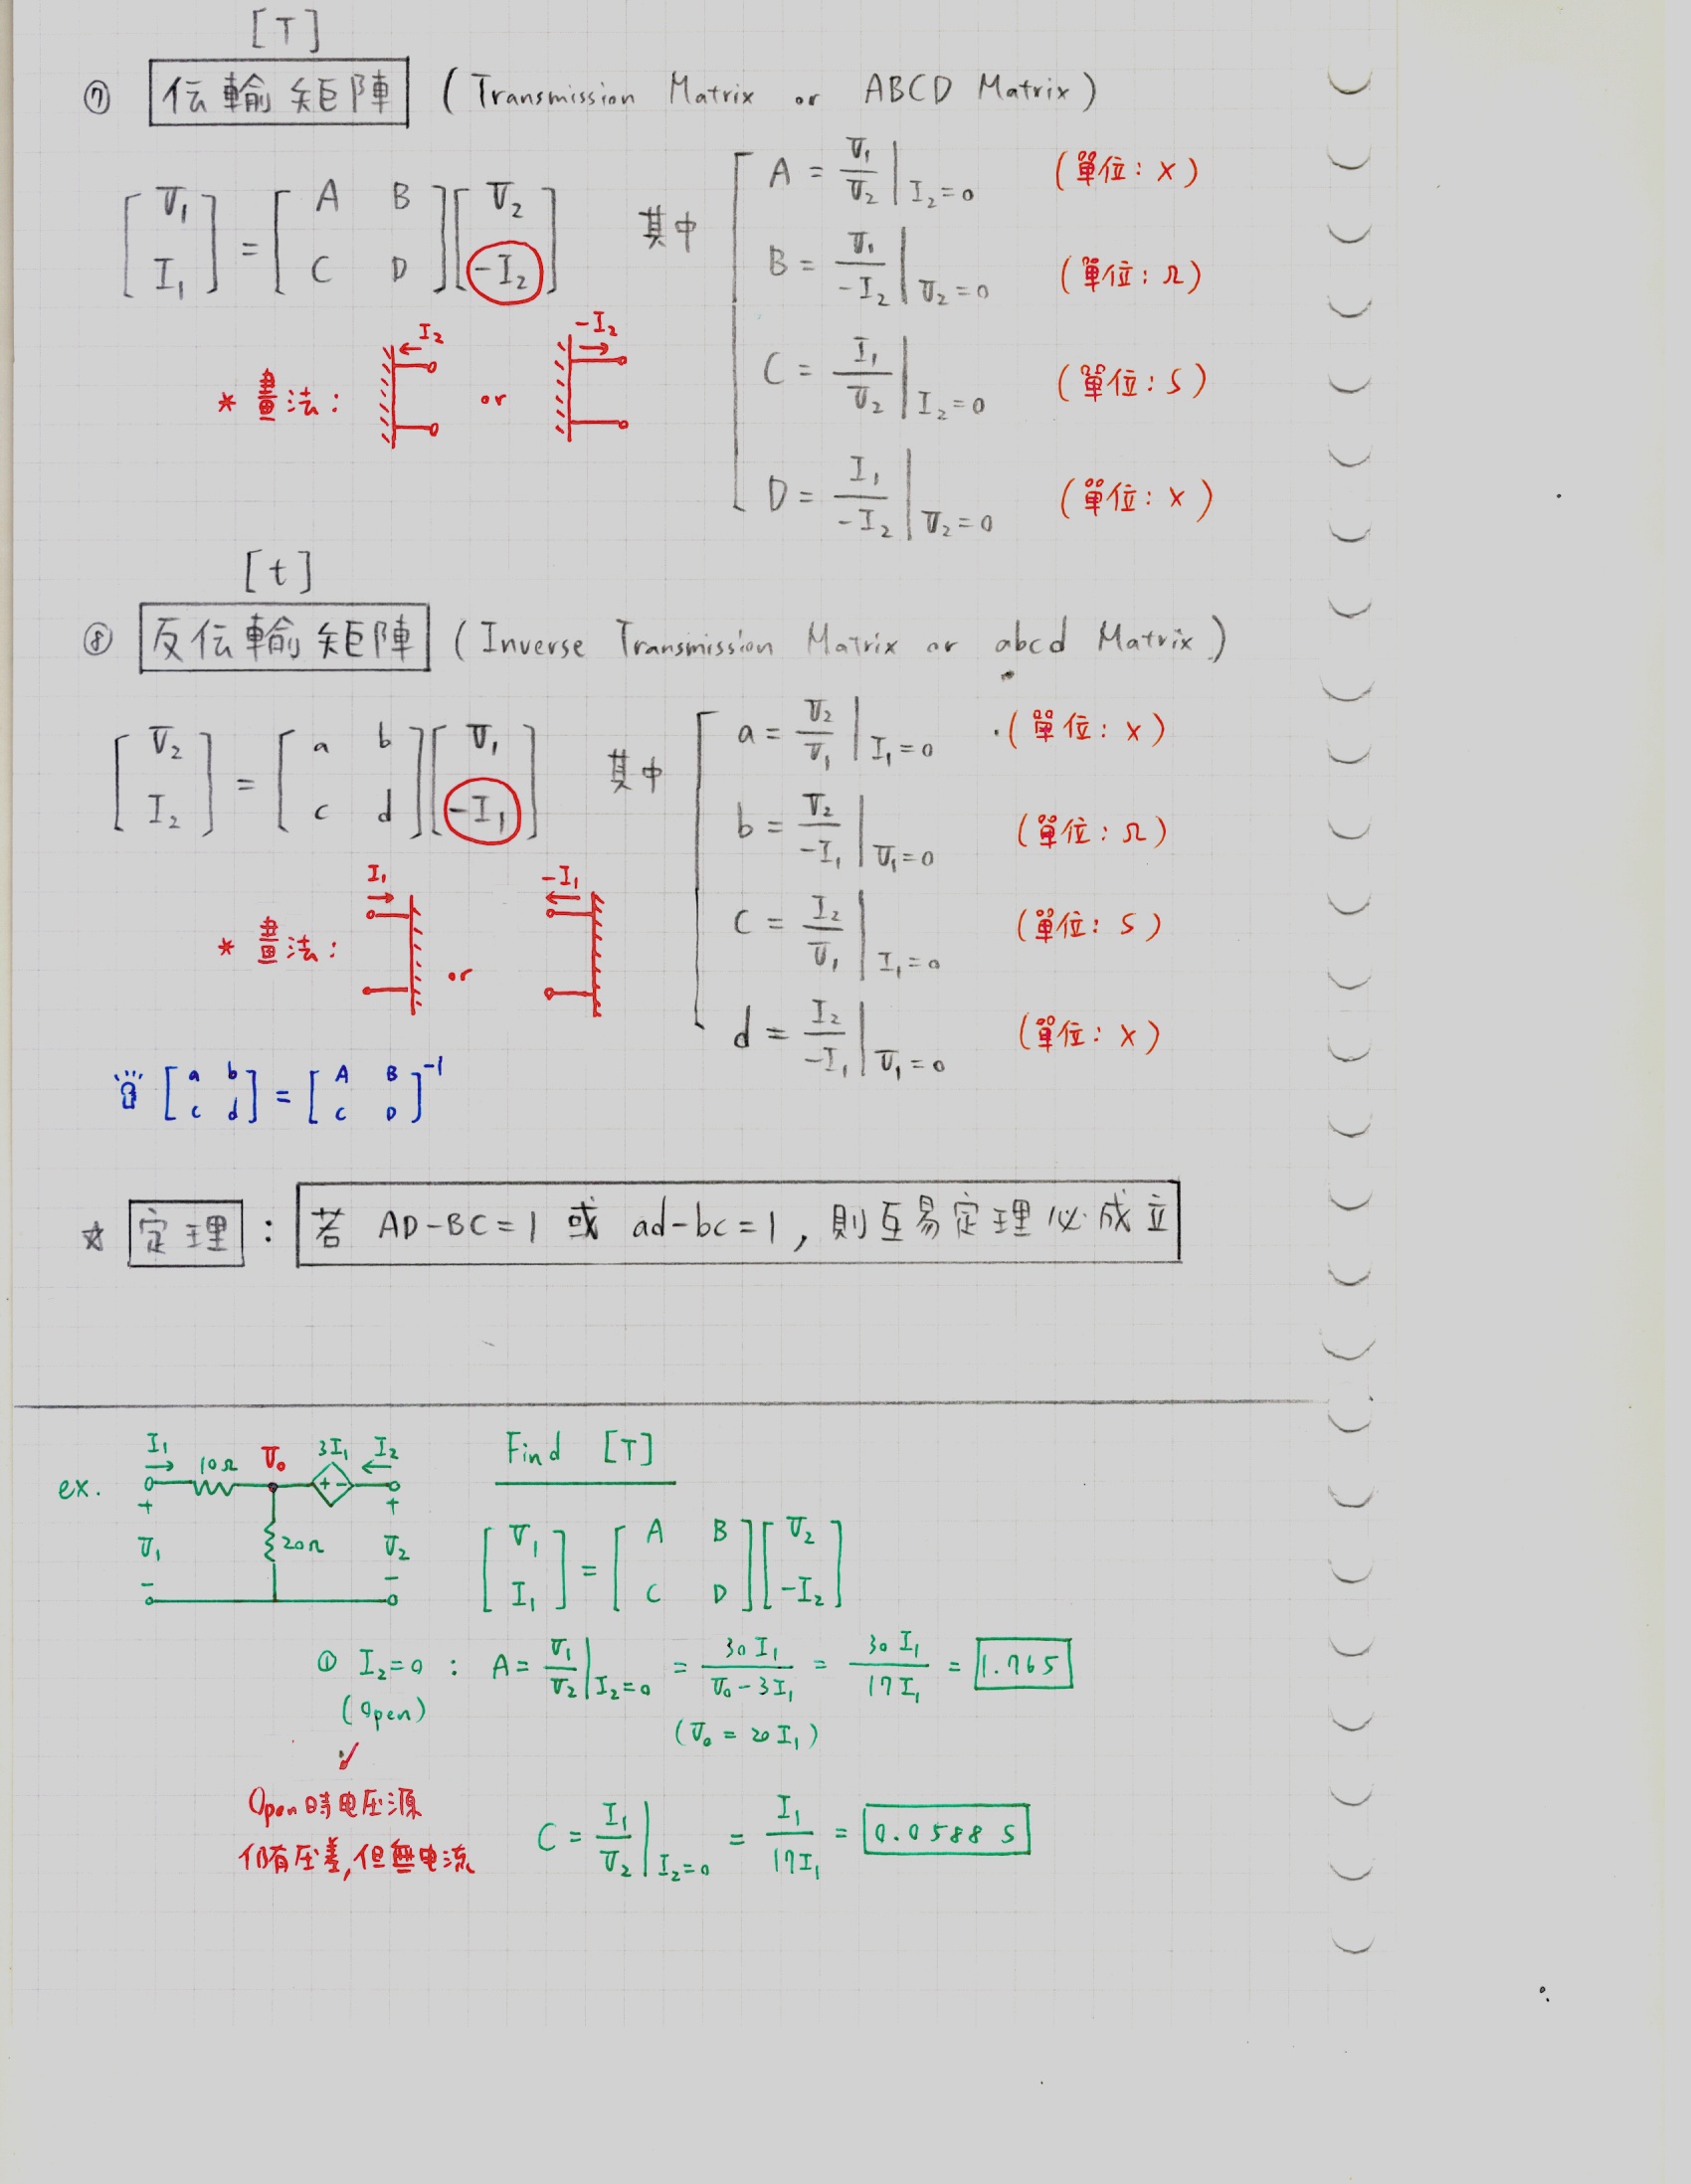 [T]
⑦ 伝輸矩陣 (Transmission Matrix or ABCD Matrix)
[V₁ I₁] = [A B C D] [V₂ -I₂] 其中
A = V₁/V₂ | I₂=0 (單位: ×)
B = V₁/-I₂ | V₂=0 (單位: Ω)
C = I₁/V₂ | I₂=0 (單位: S)
D = I₁/-I₂ | V₂=0 (單位: ×)
* 畫法: I₂ or -I₂
[t]
⑧ 反伝輸矩陣 (Inverse Transmission Matrix or abcd Matrix)
[V₂ I₂] = [a b c d] [V₁ -I₁] 其中
a = V₂/V₁ | I₁=0 (單位: ×)
b = V₂/-I₁ | V₁=0 (單位: Ω)
c = I₂/V₁ | I₁=0 (單位: S)
d = I₂/-I₁ | V₁=0 (單位: ×)
* 畫法: I₁ or -I₁
[a b c d] = [A B C D]⁻¹
☆ 定理 : 若 AD-BC=1 或 ad-bc=1, 則互易定理必成立
ex. I₁ 10Ω V₀ 3I₁ I₂
+ - + +
V₁ 20Ω V₂
- -
Find [T]
[V₁ I₁] = [A B C D] [V₂ -I₂]
① I₂=0 : A = V₁/V₂ | I₂=0 = 30I₁/V₀-3I₁ = 30I₁/17I₁ = 1.765
(Open) (V₀ = 20I₁)
Open時电压源
仍有压差,但無电流
C = I₁/V₂ | I₂=0 = I₁/17I₁ = 0.0588 S